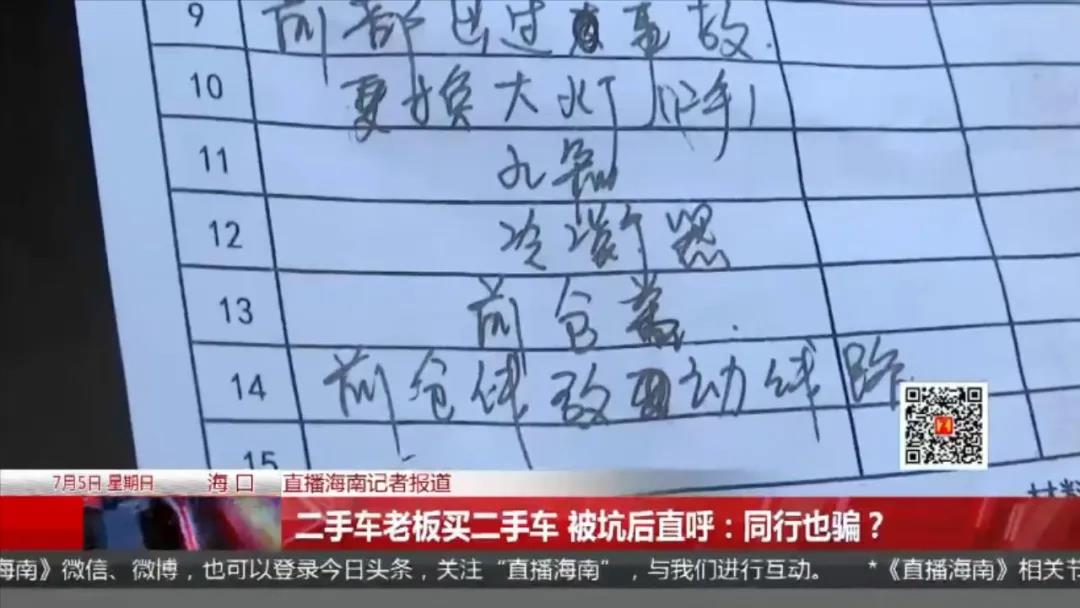 9 前部出过事故.
10 更换大灯
11
12 冷凝器
13 前仓盖.
14 前仓线改动线路
15
7月5日 星期日 海口 直播海南记者报道
二手车老板买二手车 被坑后直呼：同行也骗？
海南》微信、微博，也可以登录今日头条，关注“直播海南”，与我们进行互动。 *《直播海南》相关节